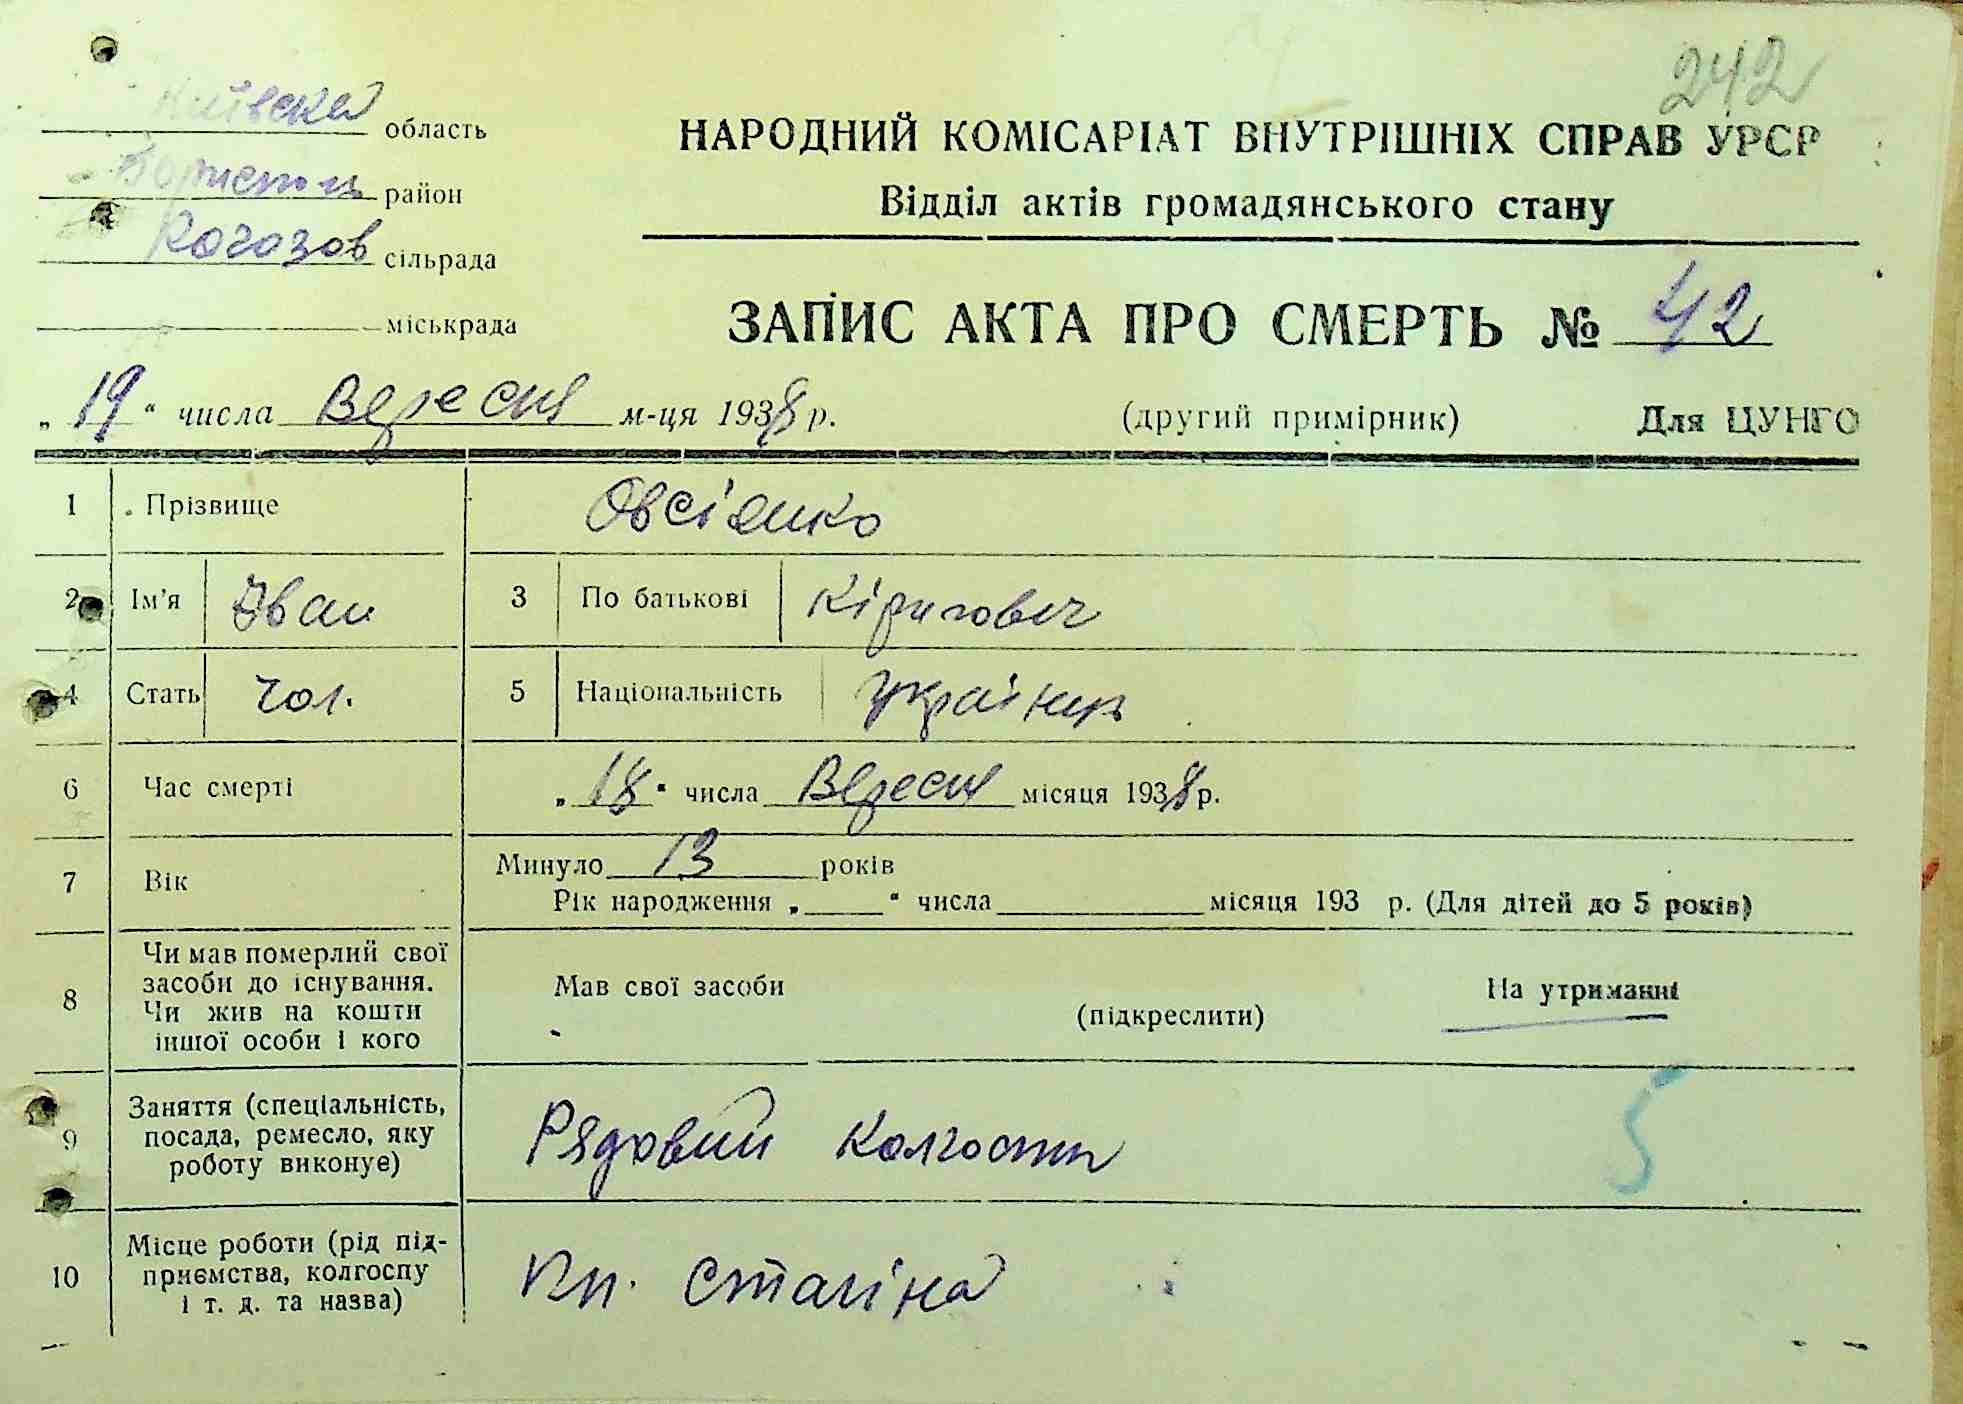 242
Київска область
Бориспол. район
Рогозов сільрада
міськрада
НАРОДНИЙ КОМІСАРІАТ ВНУТРІШНІХ СПРАВ УРСР
Відділ актів громадянського стану
ЗАПИС АКТА ПРО СМЕРТЬ № 42
„ 19 “ числа Вересня м-ця 1938 р. (другий примірник) Для ЦУНГО
1 Прізвище Овсієнко
2 Ім'я Іван 3 По батькові Кірилович
4 Стать чол. 5 Національність українець
6 Час смерті „ 18 “ числа Вересня місяця 1938 р.
7 Вік Минуло 13 років
Рік народження „ “ числа місяця 193 р. (Для дітей до 5 років)
8 Чи мав померлий свої
засоби до існування.
Чи жив на кошти
іншої особи і кого
Мав свої засоби (підкреслити) На утриманні
9 Заняття (спеціальність,
посада, ремесло, яку
роботу виконує)
Рядовий колгоспн
5
10 Місце роботи (рід під-
приємства, колгоспу
і т. д. та назва)
Сталіна